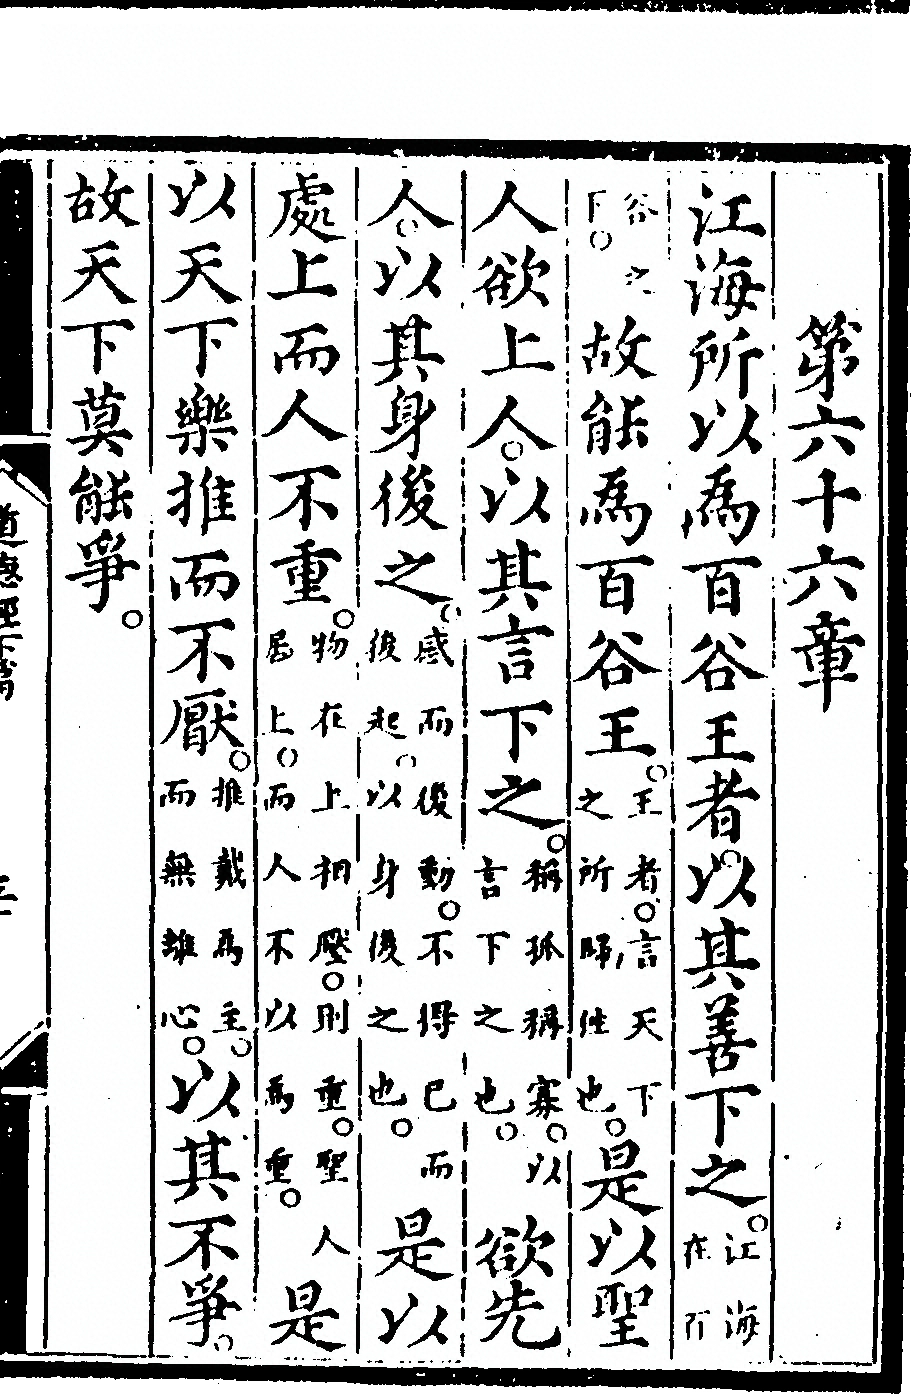 第六十六章
江海所以爲百谷王者。以其善下之。江海在百
谷之下。故能爲百谷王。王者。言天下之所歸往也。是以聖
人欲上人。以其言下之。稱孤稱寡。以言下之也。欲先
人。以其身後之。感而後動。不得已而後起。以身後之也。是以
處上而人不重。物在上相壓。則重。聖人居上。而人不以爲重。是
以天下樂推而不厭。推戴爲主。而無離心。以其不爭。
故天下莫能爭。
道德經下篇